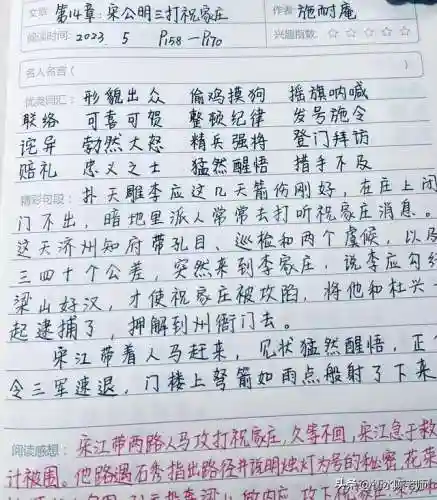 文章: 第14章:宋公明三打祝家庄 作者: 施耐庵
阅读时间: 2023. 5 P158—P170 兴趣指数: ☆ ☆ ☆ ☆ ☆
名人名言( )
优美词汇: 形貌出众 偷鸡摸狗 摇旗呐喊
联络 可喜可贺 整顿纪律 发号施令
诧异 勃然大怒 精兵强将 登门拜访
赔礼 忠义之士 猛然醒悟 措手不及
精彩句段: 扑天雕李应这几天箭伤刚好,在庄上闭
门不出,暗地里派人常常去打听祝家庄消息。
这天济州知府带孔目、巡检和两个虞候,以及
三四十个公差,突然来到李家庄,说李应勾结
梁山好汉,才使祝家庄被攻陷,将他和杜兴一
起逮捕了,押解到州衙门去。
宋江带着人马赶来,见状猛然醒悟,正
令三军速退,门楼上弩箭如雨点般射了下来
阅读感想: 宋江带两路人马攻打祝家庄,久等不回,宋江急于救
计被围。他路遇石秀指出路径并说明烛灯为号的秘密,花荣
头条